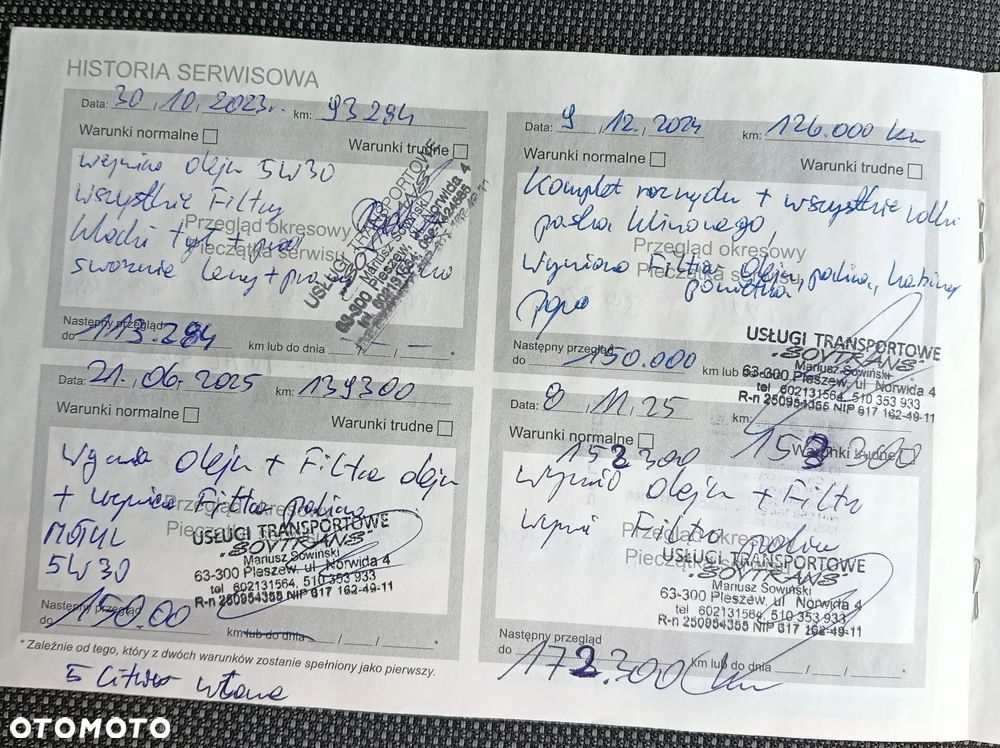 HISTORIA SERWISOWA
Data: 30.10.2023r. km: 93284
Warunki normalne
Warunki trudne
olej 5W30
wszystkie Filtry
Klocki tył +
sworznie
Przegląd okresowy
Pieczątka serwisu
USŁUGI TRANSPORTOWE
Mariusz Sowiński
63-300 Pleszew, ul. Norwida 4
Następny przegląd
do 113.284 km lub do dnia / / *
Data: 9.12.2024 km: 126.000 km
Warunki normalne
Warunki trudne
Komplet rozrządu + wszystkie rolki
paska klinowego,
Wymiana Filtra oleju, paliwa, kabiny
powietrza
Przegląd okresowy
Pieczątka serwisu
USŁUGI TRANSPORTOWE
"SOVTRANS"
Mariusz Sowiński
63-300 Pleszew, ul. Norwida 4
tel. 602131564, 510 353 933
R-n 250954355 NIP 617 162-49-11
Następny przegląd
do 150.000 km lub
Data: 21.06.2025 km: 139300
Warunki normalne
Warunki trudne
oleju + Filtra oleju
+ Filtra paliwa
MOTUL
5W30
Przegląd okresowy
Pieczątka
USŁUGI TRANSPORTOWE
"SOVTRANS"
Mariusz Sowiński
63-300 Pleszew, ul. Norwida 4
tel 602131564, 510 353 933
R-n 250954355 NIP 617 162-49-11
Następny przegląd
do 150.00 km lub do dnia / / *
* Zależnie od tego, który z dwóch warunków zostanie spełniony jako pierwszy.
5 Litrów
Data: 8.11.25 km: 152300
Warunki normalne
Warunki trudne
152300
oleju + Filtr
Filtra paliwa
Przegląd okresowy
Pieczątka serwisu
USŁUGI TRANSPORTOWE
"SOVTRANS"
Mariusz Sowiński
63-300 Pleszew, ul. Norwida 4
tel. 602131564, 510 353 933
R-n 250954355 NIP 617 162-49-11
Następny przegląd
do 172.300 km km lub do dnia / / *
OTOMOTO